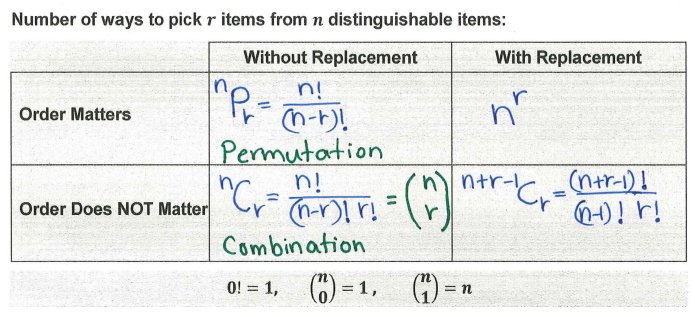 Number of ways to pick r items from n distinguishable items:
Without Replacement With Replacement
Order Matters
ⁿPᵣ = n! / (n-r)!
Permutation
nʳ
Order Does NOT Matter
ⁿCᵣ = n! / (n-r)! r! = (n r)
Combination
ⁿ⁺ʳ⁻¹Cᵣ = (n+r-1)! / (n-1)! r!
0! = 1, (n 0) = 1, (n 1) = n